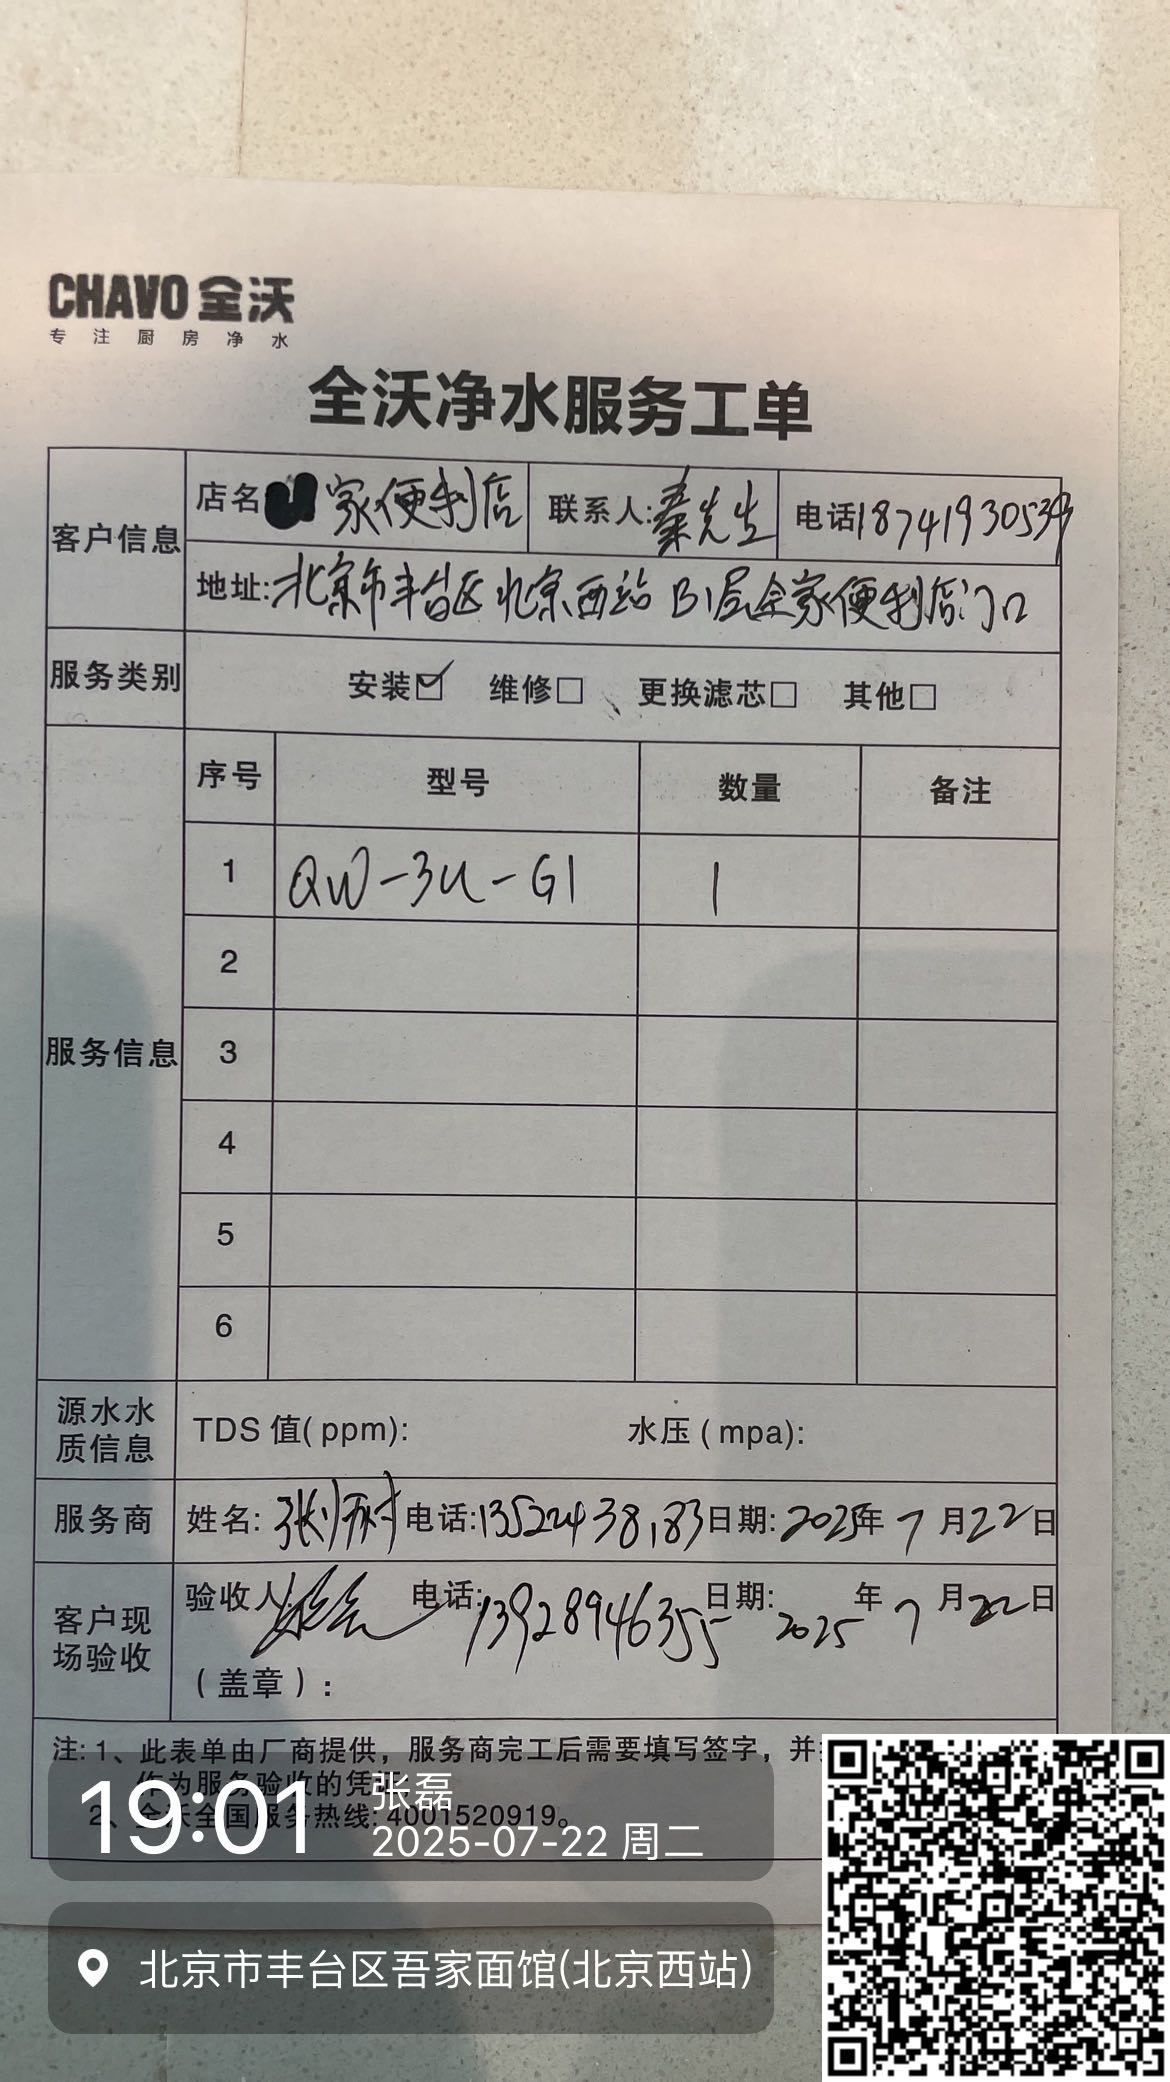 CHAVO 全沃
专注厨房净水
全沃净水服务工单
客户信息
店名 家便利店 联系人:秦先生 电话18741930539
地址:北京市丰台区北京西站B1层全家便利店门口
服务类别 安装☑ 维修□ 更换滤芯□ 其他□
服务信息
序号 型号 数量 备注
1 QW-3U-G1 1
2
3
4
5
6
源水水质信息 TDS 值(ppm): 水压(mpa):
服务商 姓名: 张 电话:13522438183 日期:2025年7月22日
客户现场验收 验收人: 电话:13928946355 日期:2025年7月22日
(盖章):
注: 1、此表单由厂商提供,服务商完工后需要填写签字,并
作为服务验收的凭证
2、全沃全国服务热线:4001520919。
19:01
张磊
2025-07-22 周二
北京市丰台区吾家面馆(北京西站)